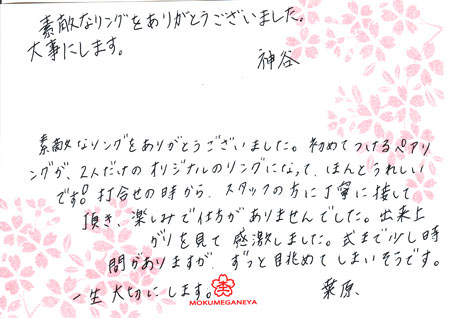 素敵なリングをありがとうございました。
大事にします。
神谷
素敵なリングをありがとうございました。初めてつけるペアリ
ングが、2人だけのオリジナルのリングになって、ほんとうれしい
です。打合せの時から、スタッフの方に丁寧に接して
頂き、楽しみで仕方がありませんでした。出来上
がりを見て感激しました。式まで少し時
間がありますが、ずっと眺めてしまいそうです。
一生大切にします。
葉原、
MOKUMEGANEYA